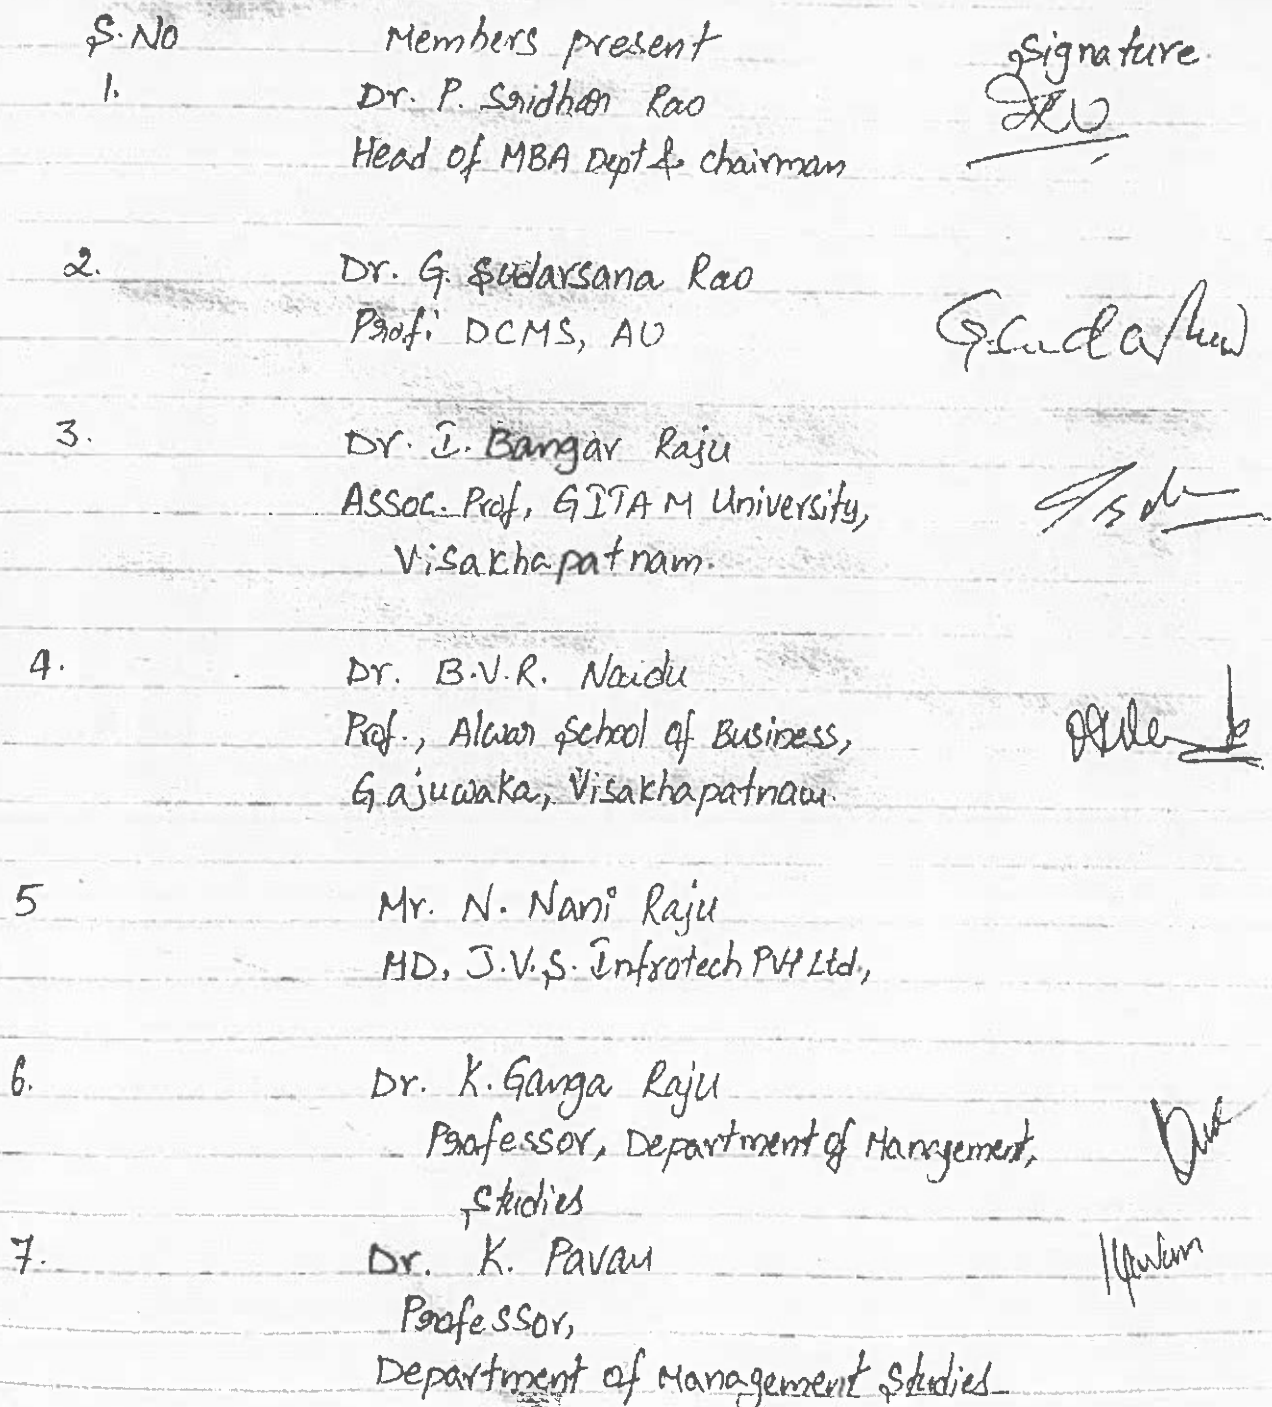 S.No Members present Signature.
1. Dr. P. Sridhar Rao
Head of MBA Dept & chairman
2. Dr. G. Sudarsana Rao
Prof. DCMS, AU
3. Dr. I. Bangar Raju
Assoc. Prof, GITAM University,
Visakhapatnam.
4. Dr. B.V.R. Naidu
Prof., Alwar School of Business,
Gajuwaka, Visakhapatnam.
5 Mr. N. Nani Raju
MD, J.V.S. Infrotech Pvt Ltd.,
6. Dr. K. Ganga Raju
Professor, Department of Management,
Studies
7. Dr. K. Pavan
Professor,
Department of Management Studies